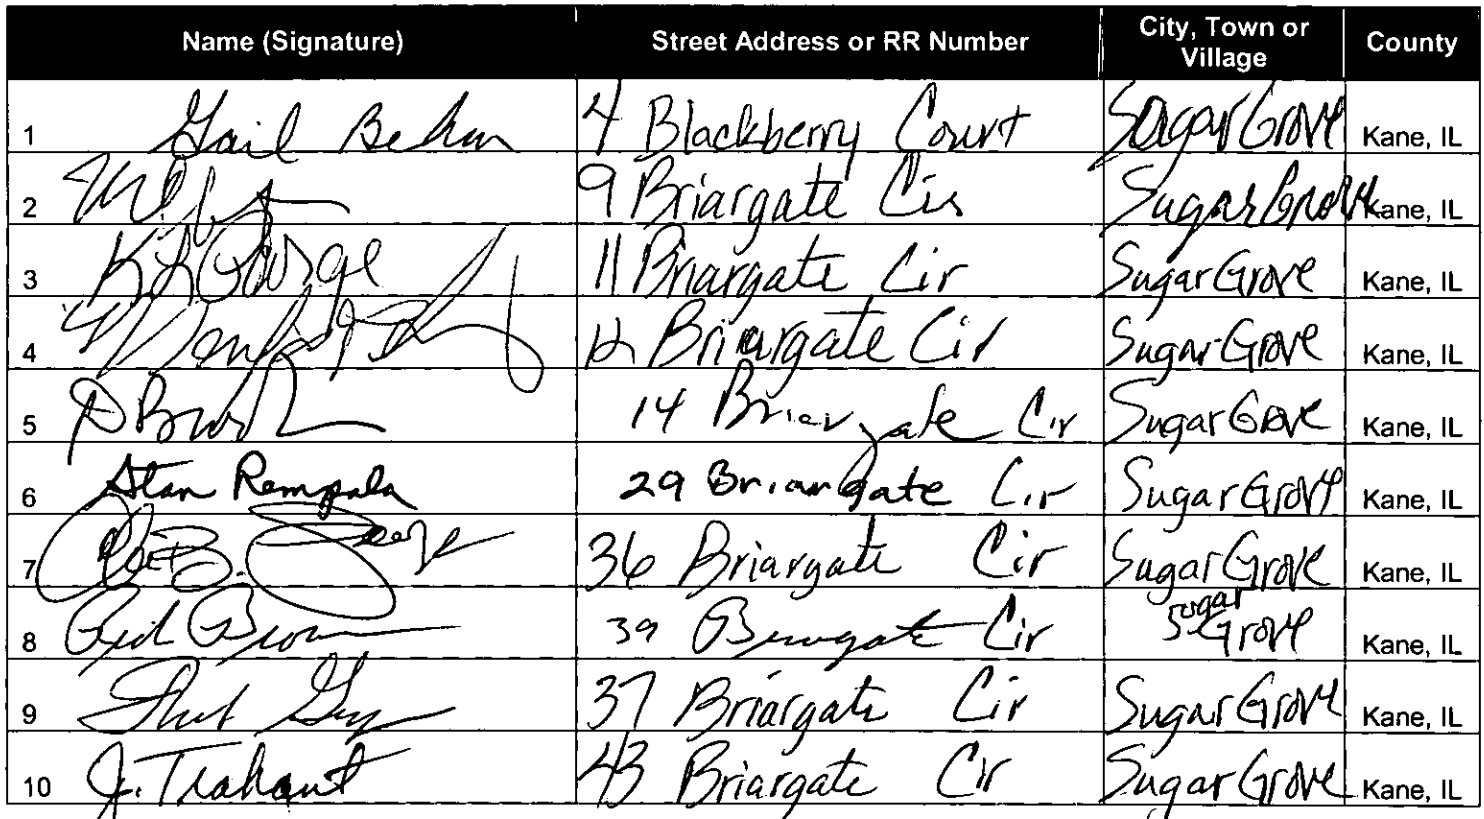 Name (Signature) Street Address or RR Number City, Town or Village County
1 Gail 4 Blackberry Court Sugar Grove Kane, IL
2 9 Briargate Cir Sugar Grove Kane, IL
3 11 Briargate Cir Sugar Grove Kane, IL
4 12 Briargate Cir Sugar Grove Kane, IL
5 14 Briargate Cir Sugar Grove Kane, IL
6 Stan Rempala 29 Briargate Cir Sugar Grove Kane, IL
7 36 Briargate Cir Sugar Grove Kane, IL
8 Brown 39 Briargate Cir Sugar Grove Kane, IL
9 37 Briargate Cir Sugar Grove Kane, IL
10 J. Trahant 43 Briargate Cir Sugar Grove Kane, IL